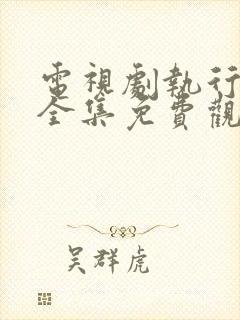 電視劇執行
全集免費觀
吳群虎